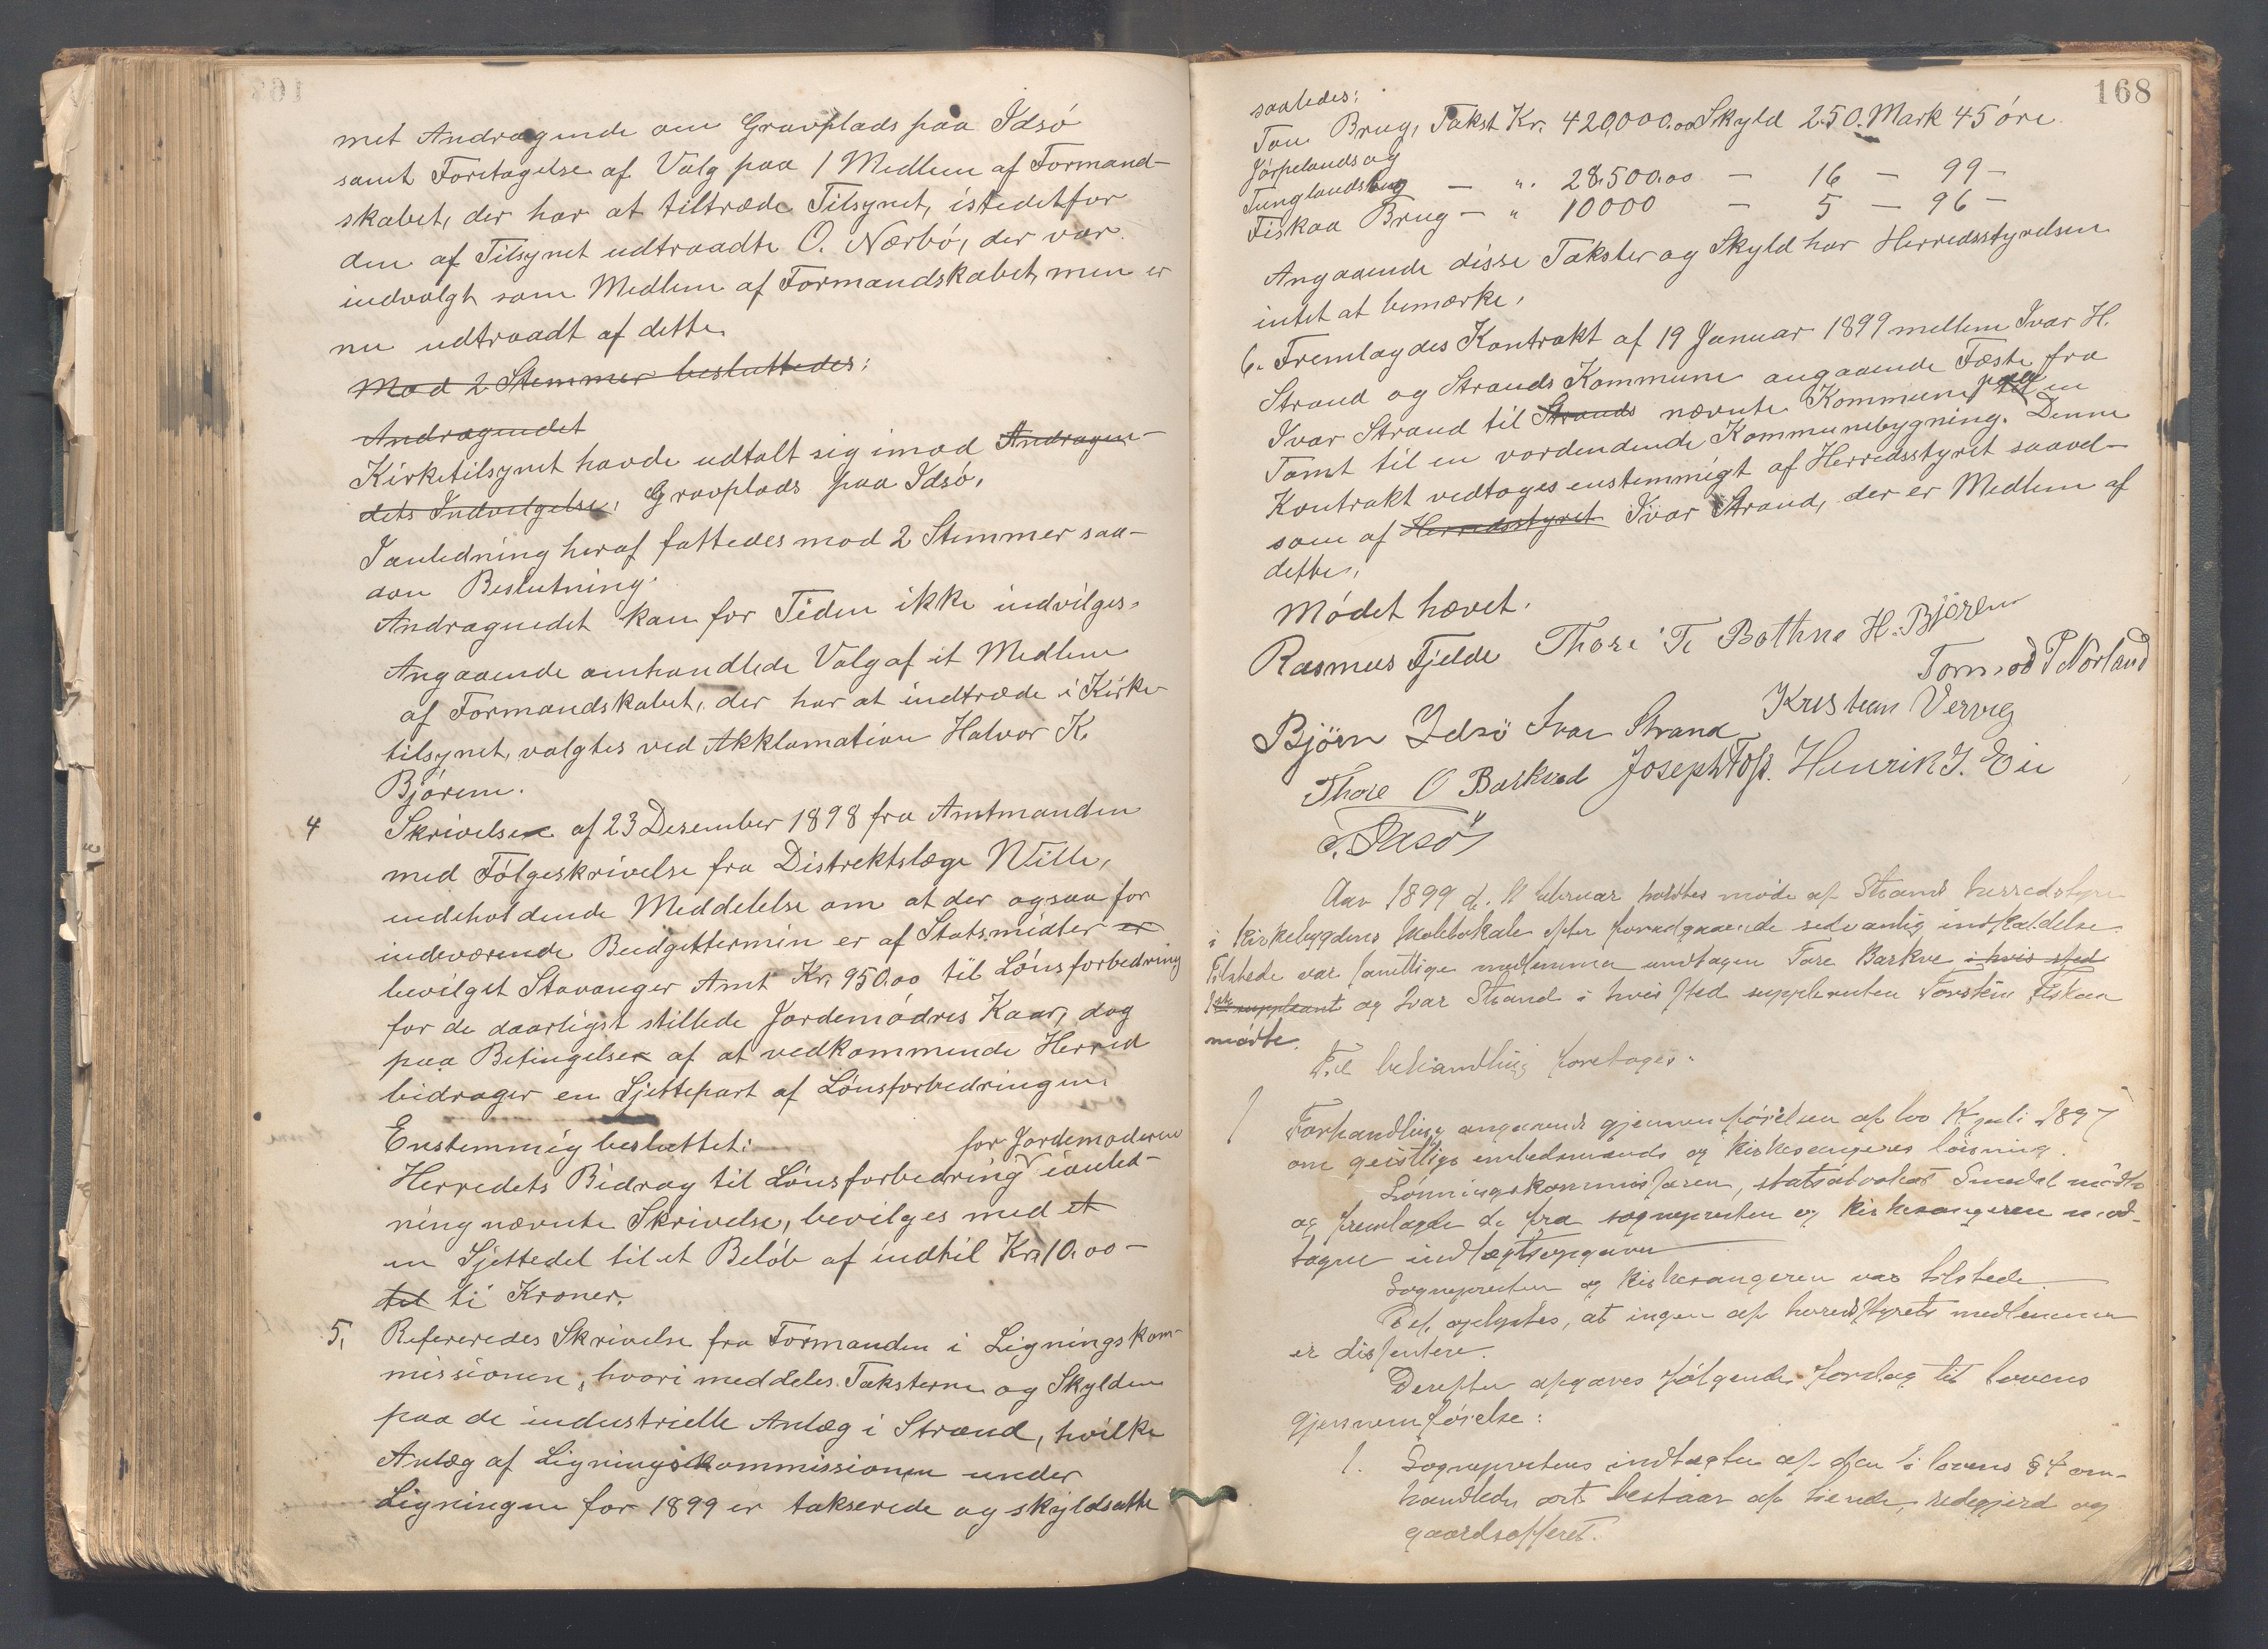 met Andragende om Gravplads paa Idsø
samt Foretagelse af Valg paa 1 Medlem af Formand-
skabet, der har at tiltræde Tilsynet, istedetfor
den af Tilsynet udtraadte O. Nærbø, der var
indvalgt som Medlem af Formandskabet, men er
nu udtraadt af dette.
Mod 2 Stemmer besluttedes:
Andragendet
Kirketilsynet havde udtalt sig imod Andragen-
dets Indvilgelse. Gravplads paa Idsø.
I anledning heraf fattedes mod 2 Stemmer saa-
dan Beslutning:
Andragendet kan for Tiden ikke indvilges.
Angaaende omhandlede Valg af et Medlem
af Formandskabet, der har at indtræde i Kirke-
tilsynet, valgtes ved Akklamation Halvor K.
Bjørem.
4 Skrivelse af 23 Desember 1898 fra Amtmanden
med Følgeskrivelse fra Distrektslæge Wille,
indeholdende Meddelelse om at der ogsaa for
indeværende Budgettermin er af Statsmidler er
bevilget Stavanger Amt Kr. 950.00 til Lønsforbedring
for de daarligst stillede Jordemødres Kaar, dog
paa Betingelse af at vedkommende Herred
bidrager en Sjettepart af Lønsforbedringen.
Enstemmig besluttet: for Jordemoderen
Herredets Bidrag til Lønsforbedring ianled-
ning nævnte Skrivelse, bevilges med et
en Sjettedel til et Beløb af indtil Kr. 10.00 -
til ti Kroner.
5. Refereredes Skrivelse fra Formanden i Ligningskom-
missionen, hvori meddeles Taksterne og Skylden
paa de industrielle Anlæg i Strand, hvilke
Anlæg af Ligningskommissionen under
Ligningen for 1899 er takserede og skyldsatte
168
saaledes:
Tou Brug, Takst Kr. 420,000.00 Skyld 250. Mark 45 øre.
Jørpelands og
Tunglands Brug — „. 28.500.00 — 16 — 99 —
Fiskaa Brug — „ 10000 — 5 — 96 —
Angaaende disse Takster og Skyld har Herredsstyrelsen
intet at bemærke.
6. Fremlagdes Kontrakt af 19 Januar 1899 mellem Ivar H.
Strand og Strands Kommune angaaende Fæste fra
Ivar Strand til Strands nævnte Kommune paa en
Tomt til en vordendende Kommunebygning. Denne
Kontrakt vedtoges enstemmigt af Herredsstyret saavel-
som af Herredsstyret Ivar Strand, der er Medlem af
dette.
Mødet hævet.
Rasmus Fjelde Thore T. Bothne H. Bjørem
Tormod P Nörland
Björn Idsö Ivar Strand Kristian Verveg
Thore O Barkved Joseph Foss. Henrik J. Eie
Idsö
Aar 1899 d. 11 februar holdtes møde af Strand herredstyre
i Kirkebygdens skolelokale efter forudgaaende sedvanlig indkaldelse.
Tilstede var samtlige medlemmer undtagen Tore Barkve i hvis sted
1ste suppleant og Ivar Strand i hvis sted suppleanten Torstein Fiskaa
mødte.
Til behandling foretoges:
1 Forhandling angaaende gjennemførelsen af lov 14 juli 1897
om geistlige embedsmænds og kirkesangeres løsning.
Lønningskommissæren, statsadvokat Smedal mødte
og fremlagde de fra sognepresten og kirkesangeren mod-
tagne indtægtsopgaver
Sognepresten og kirkesangeren var tilstede.
Det oplystes, at ingen af herredstyrets medlemmer
er dissentere.
Derefter afgaves følgende forslag til lovens
gjennemførelse:
1. Sogneprestens indtægter af den i lovens § 4 om-
handlede art bestaar af tiende, redegjerd og
gaardsofferet.